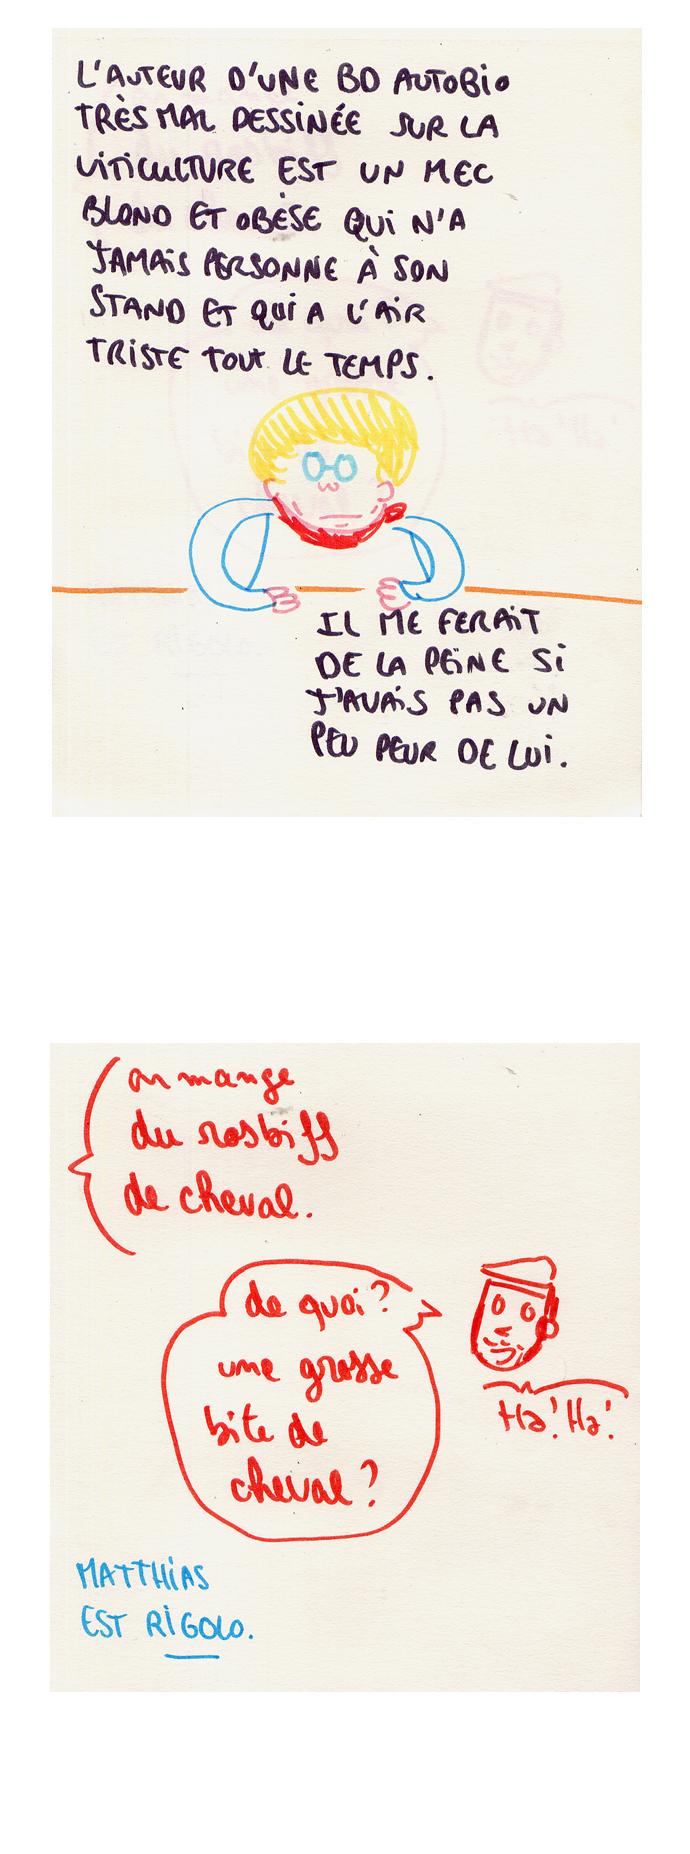 L'AUTEUR D'UNE BD AUTOBIO
TRÈS MAL DESSINÉE SUR LA
VITICULTURE EST UN MEC
BLOND ET OBÈSE QUI N'A
JAMAIS PERSONNE À SON
STAND ET QUI A L'AIR
TRISTE TOUT LE TEMPS.
IL ME FERAIT
DE LA PEINE SI
J'AVAIS PAS UN
PEU PEUR DE LUI.
on mange
du rosbiff
de cheval.
de quoi ?
une grosse
bite de
cheval ?
Ha! Ha!
MATTHIAS
EST RIGOLO.